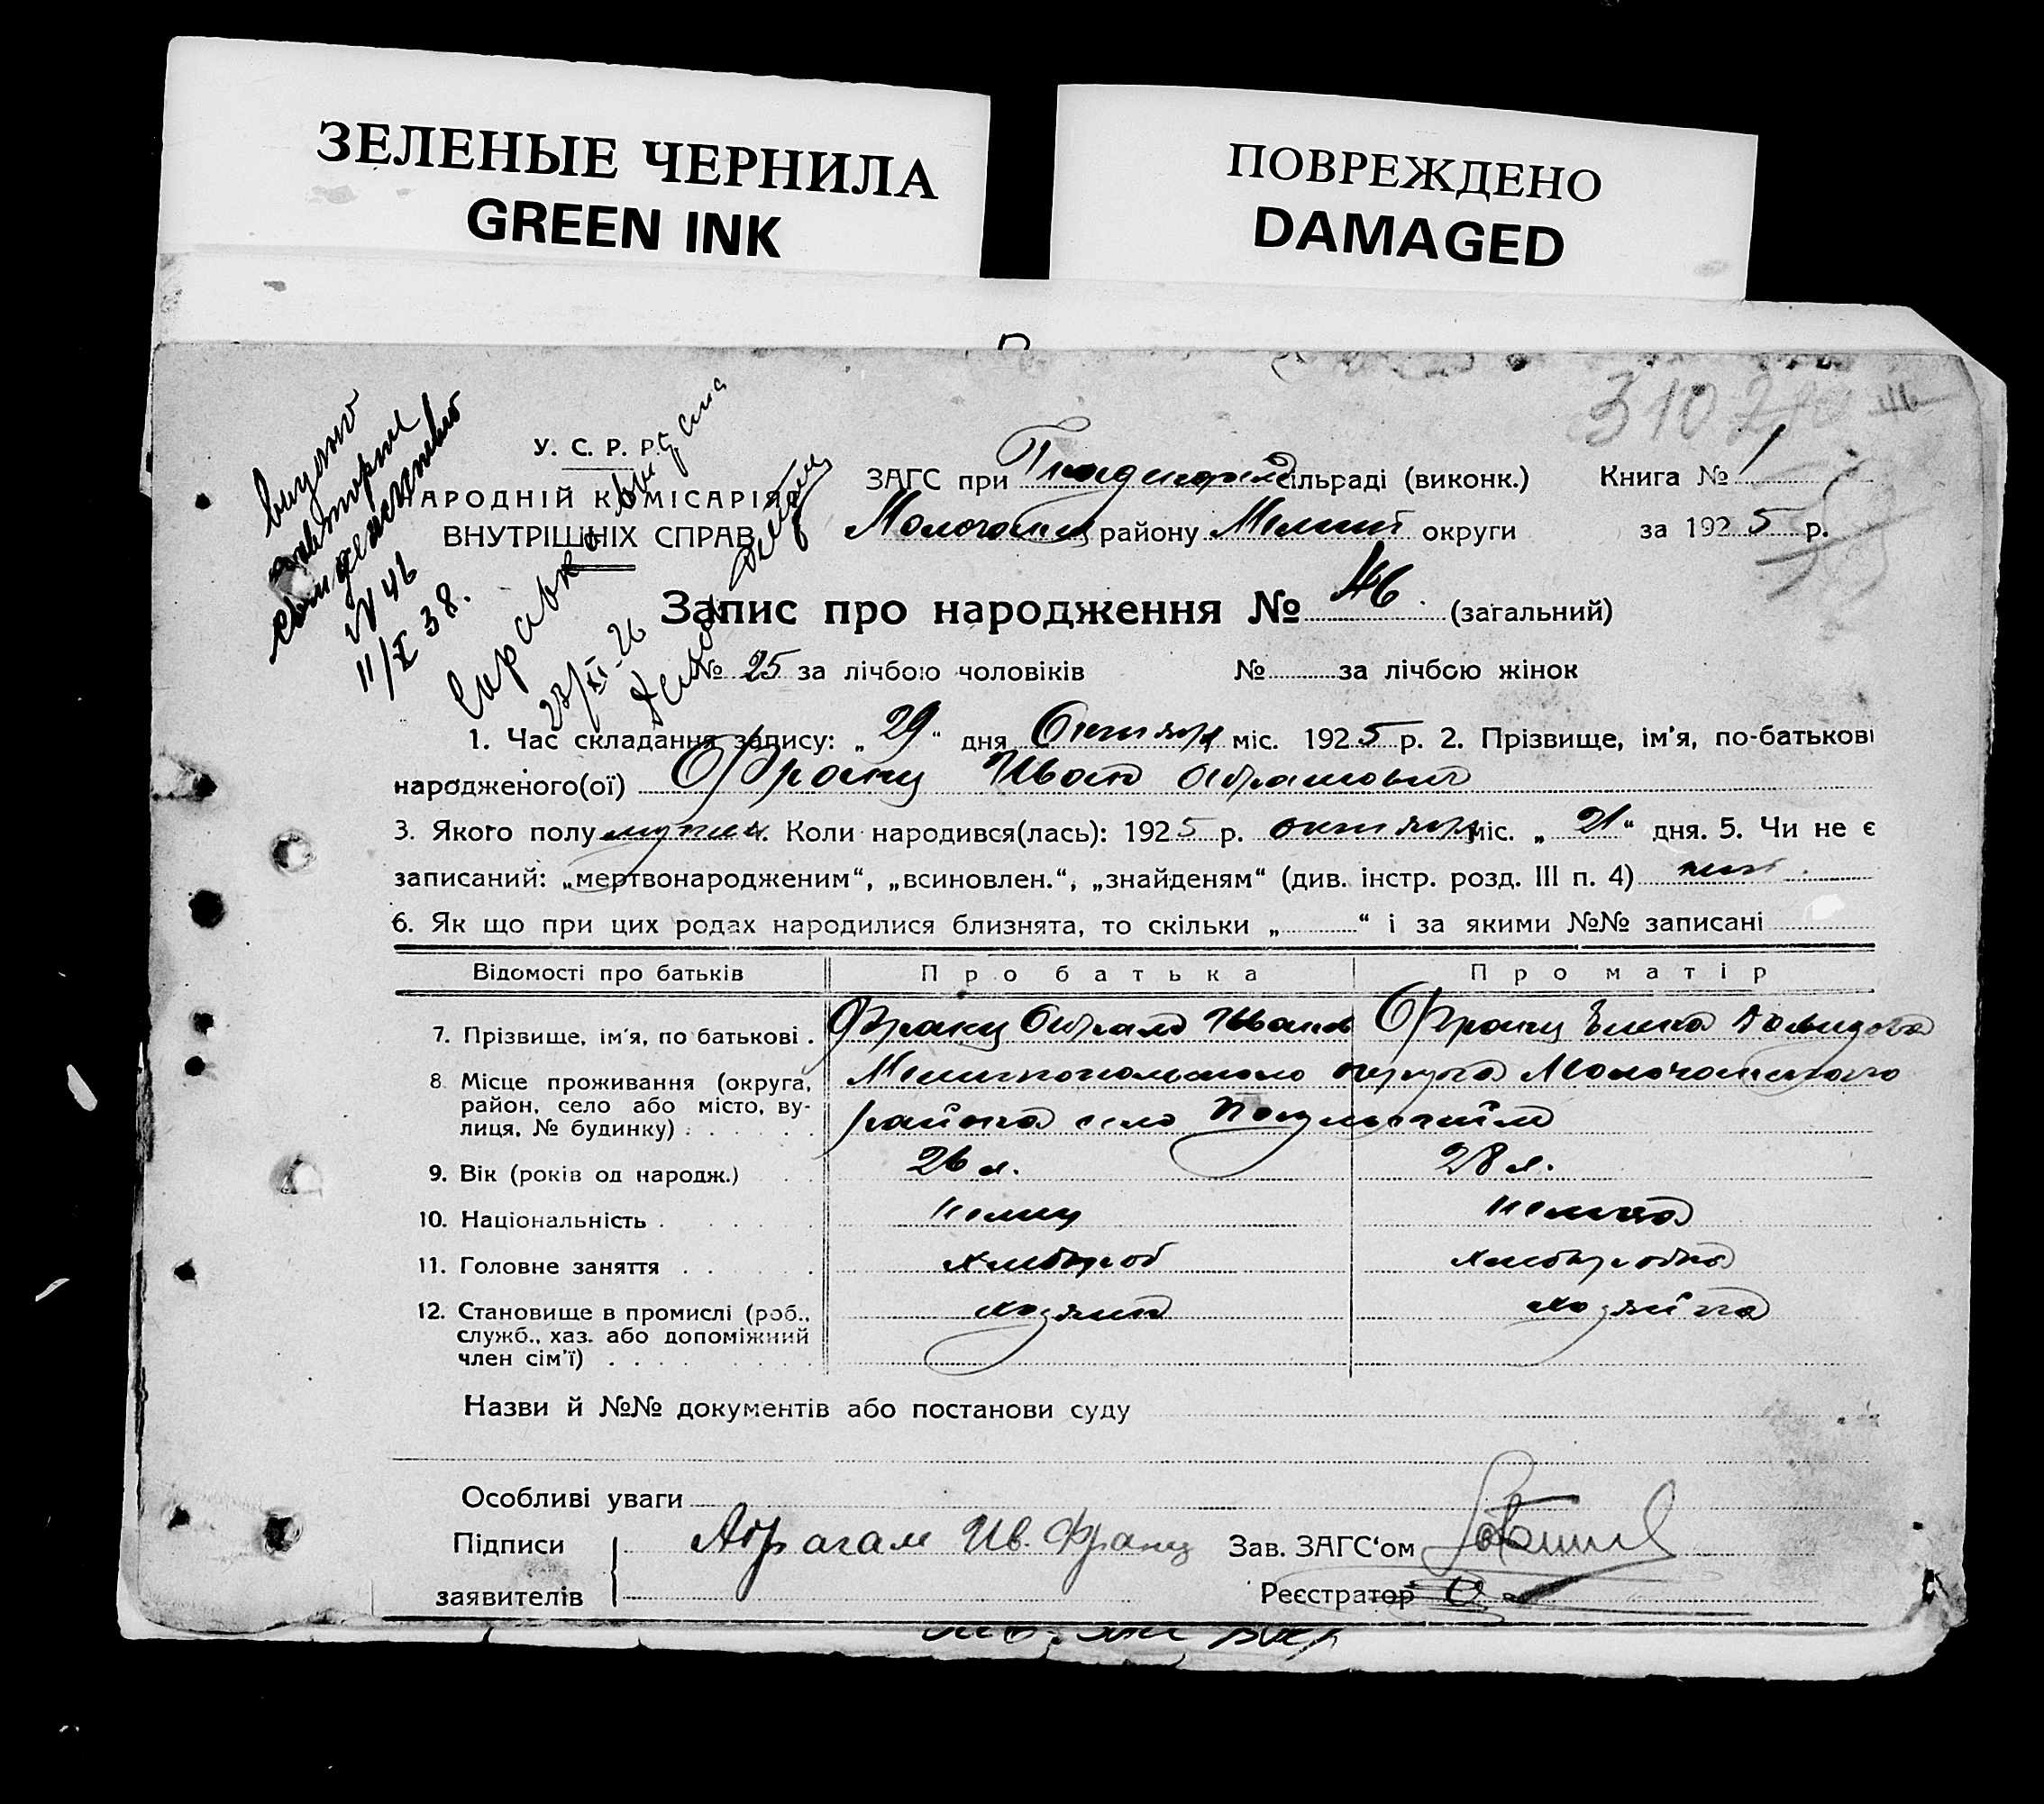 ЗЕЛЕНЫЕ ЧЕРНИЛА
GREEN INK
ПОВРЕЖДЕНО
DAMAGED
310
видано
повторне
свидетельство
N 46
11/X 38.
Справка выдана
23/XI-26
У. С. Р. Р.
НАРОДНІЙ КОМІСАРІЯТ
ВНУТРІШНІХ СПРАВ
ЗАГС при сільраді (виконк.)
Книга № 1
района Мелит округи
за 1925 р.
Запис про народження № 46. (загальний)
№ 25 за лічбою чоловіків № за лічбою жінок
1. Час складання запису: „ 29 “ дня Октября міс. 1925 р. 2. Прізвище, ім’я, по-батькові
народженого(ої) Франц Иван Абрамович
3. Якого полу мужск. Коли народився(лась): 1925 р. октября міс. „ 21 “ дня. 5. Чи не є
записаний: „мертвонародженим“, „всиновлен.“, „знайденям“ (див. інстр. розд. III п. 4) нет.
6. Як що при цих родах народилися близнята, то скільки „ “ і за якими №№ записані
Відомості про батьків Про батька Про матір
7. Прізвище, ім’я, по батькові . Франц Абрам Иванов Франц Елена Давидова
8. Місце проживання (округа, Мелитопольского округа Молочанского
район, село або місто, ву-
лиця, № будинку) района село
9. Вік (років од народж.) 26 л. 28 л.
10. Національність немец немка
11. Головне заняття хлебороб хлеборобка
12. Становище в промислі (роб., хозяин хозяйка
служб., хаз. або допоміжний
член сім’ї)
Назви й №№ документів або постанови суду
Особливі уваги
Підписи Абрагам Ив. Франц Зав. ЗАГС‘ом
заявителів Реєстратор